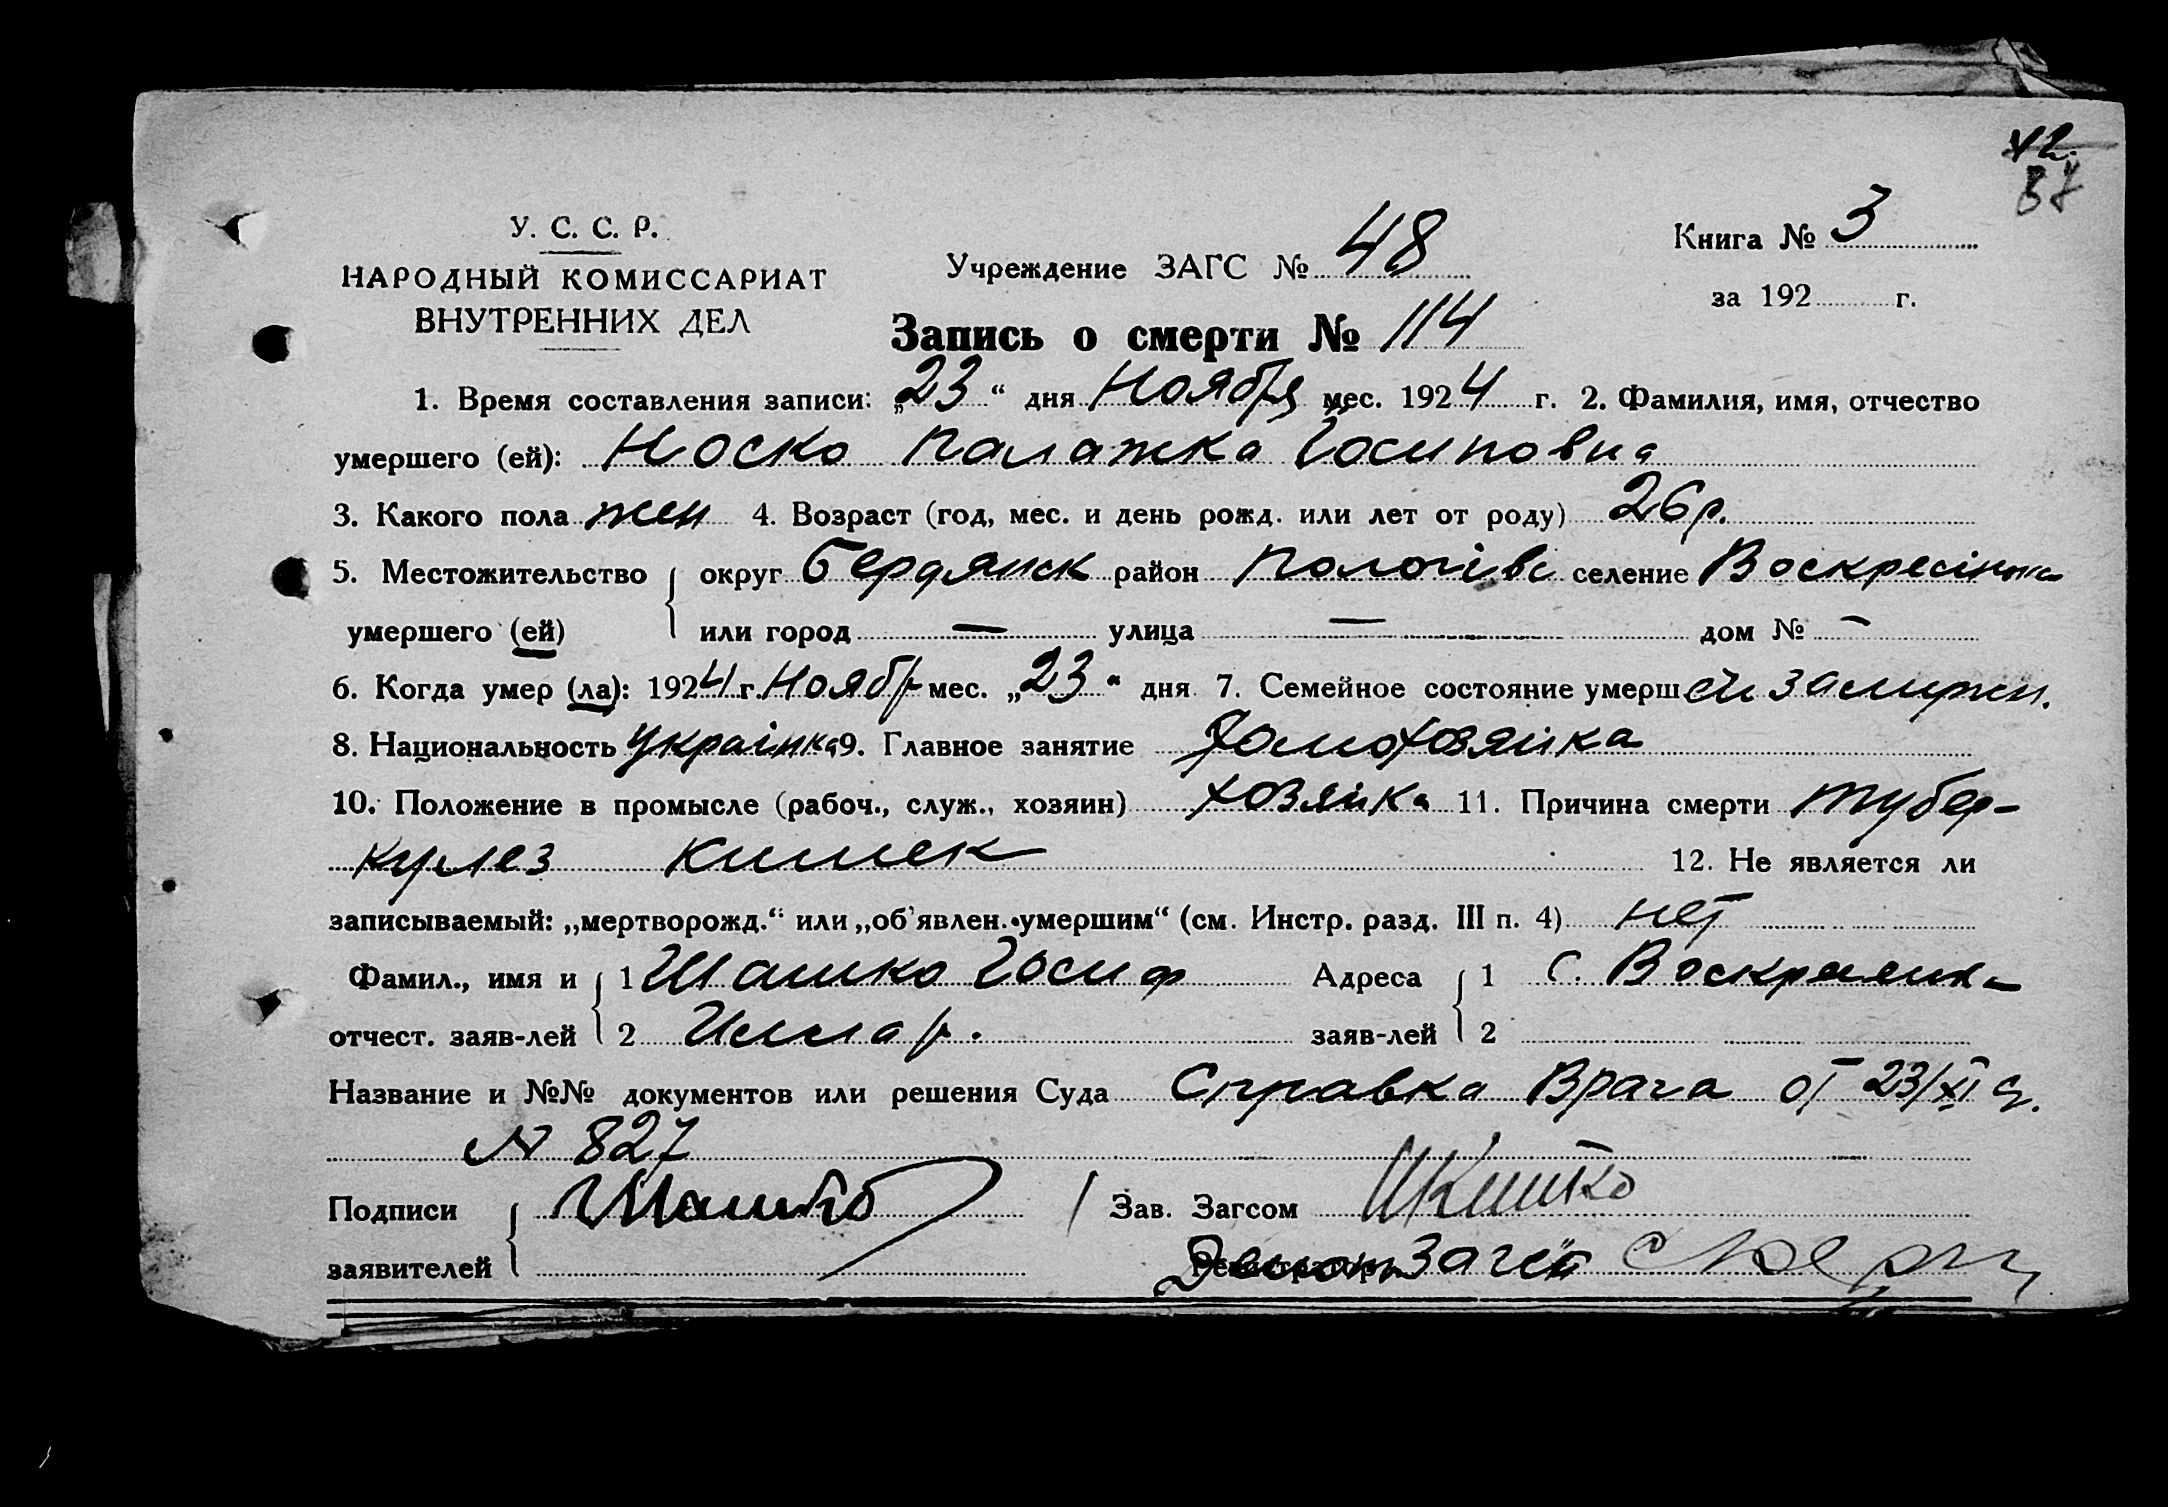 42.
37
У. С. С. Р.
НАРОДНЫЙ КОМИССАРИАТ
ВНУТРЕННИХ ДЕЛ
Учреждение ЗАГС № 48
Книга № 3
за 192 г.
Запись о смерти № 114
1. Время составления записи: „23“ дня Ноября мес. 1924 г. 2. Фамилия, имя, отчество
умершего (ей): Носко Палажка Іосиповна
3. Какого пола жен 4. Возраст (год, мес. и день рожд. или лет от роду) 26 р.
5. Местожительство округ Бердянск район Пологівс селение Воскресінка
умершего (ей) или город — улица — дом № —
6. Когда умер (ла): 1924 г. Ноябр мес. „23“ дня 7. Семейное состояние умершей замужн.
8. Национальность українка 9. Главное занятие Домохозяйка
10. Положение в промысле (рабоч., служ., хозяин) хозяйка 11. Причина смерти тубер-
кулез кишек 12. Не является ли
записываемый: „мертворожд.“ или „об'явлен. умершим“ (см. Инстр. разд. III п. 4) нет
Фамил., имя и 1 Шашко Іосиф Адреса 1 С. Воскресенка
отчест. заяв-лей 2 Иллар. заяв-лей 2
Название и №№ документов или решения Суда Справка Врача от 23/XI с.
№ 827
Подписи Шашко Зав. Загсом
заявителей